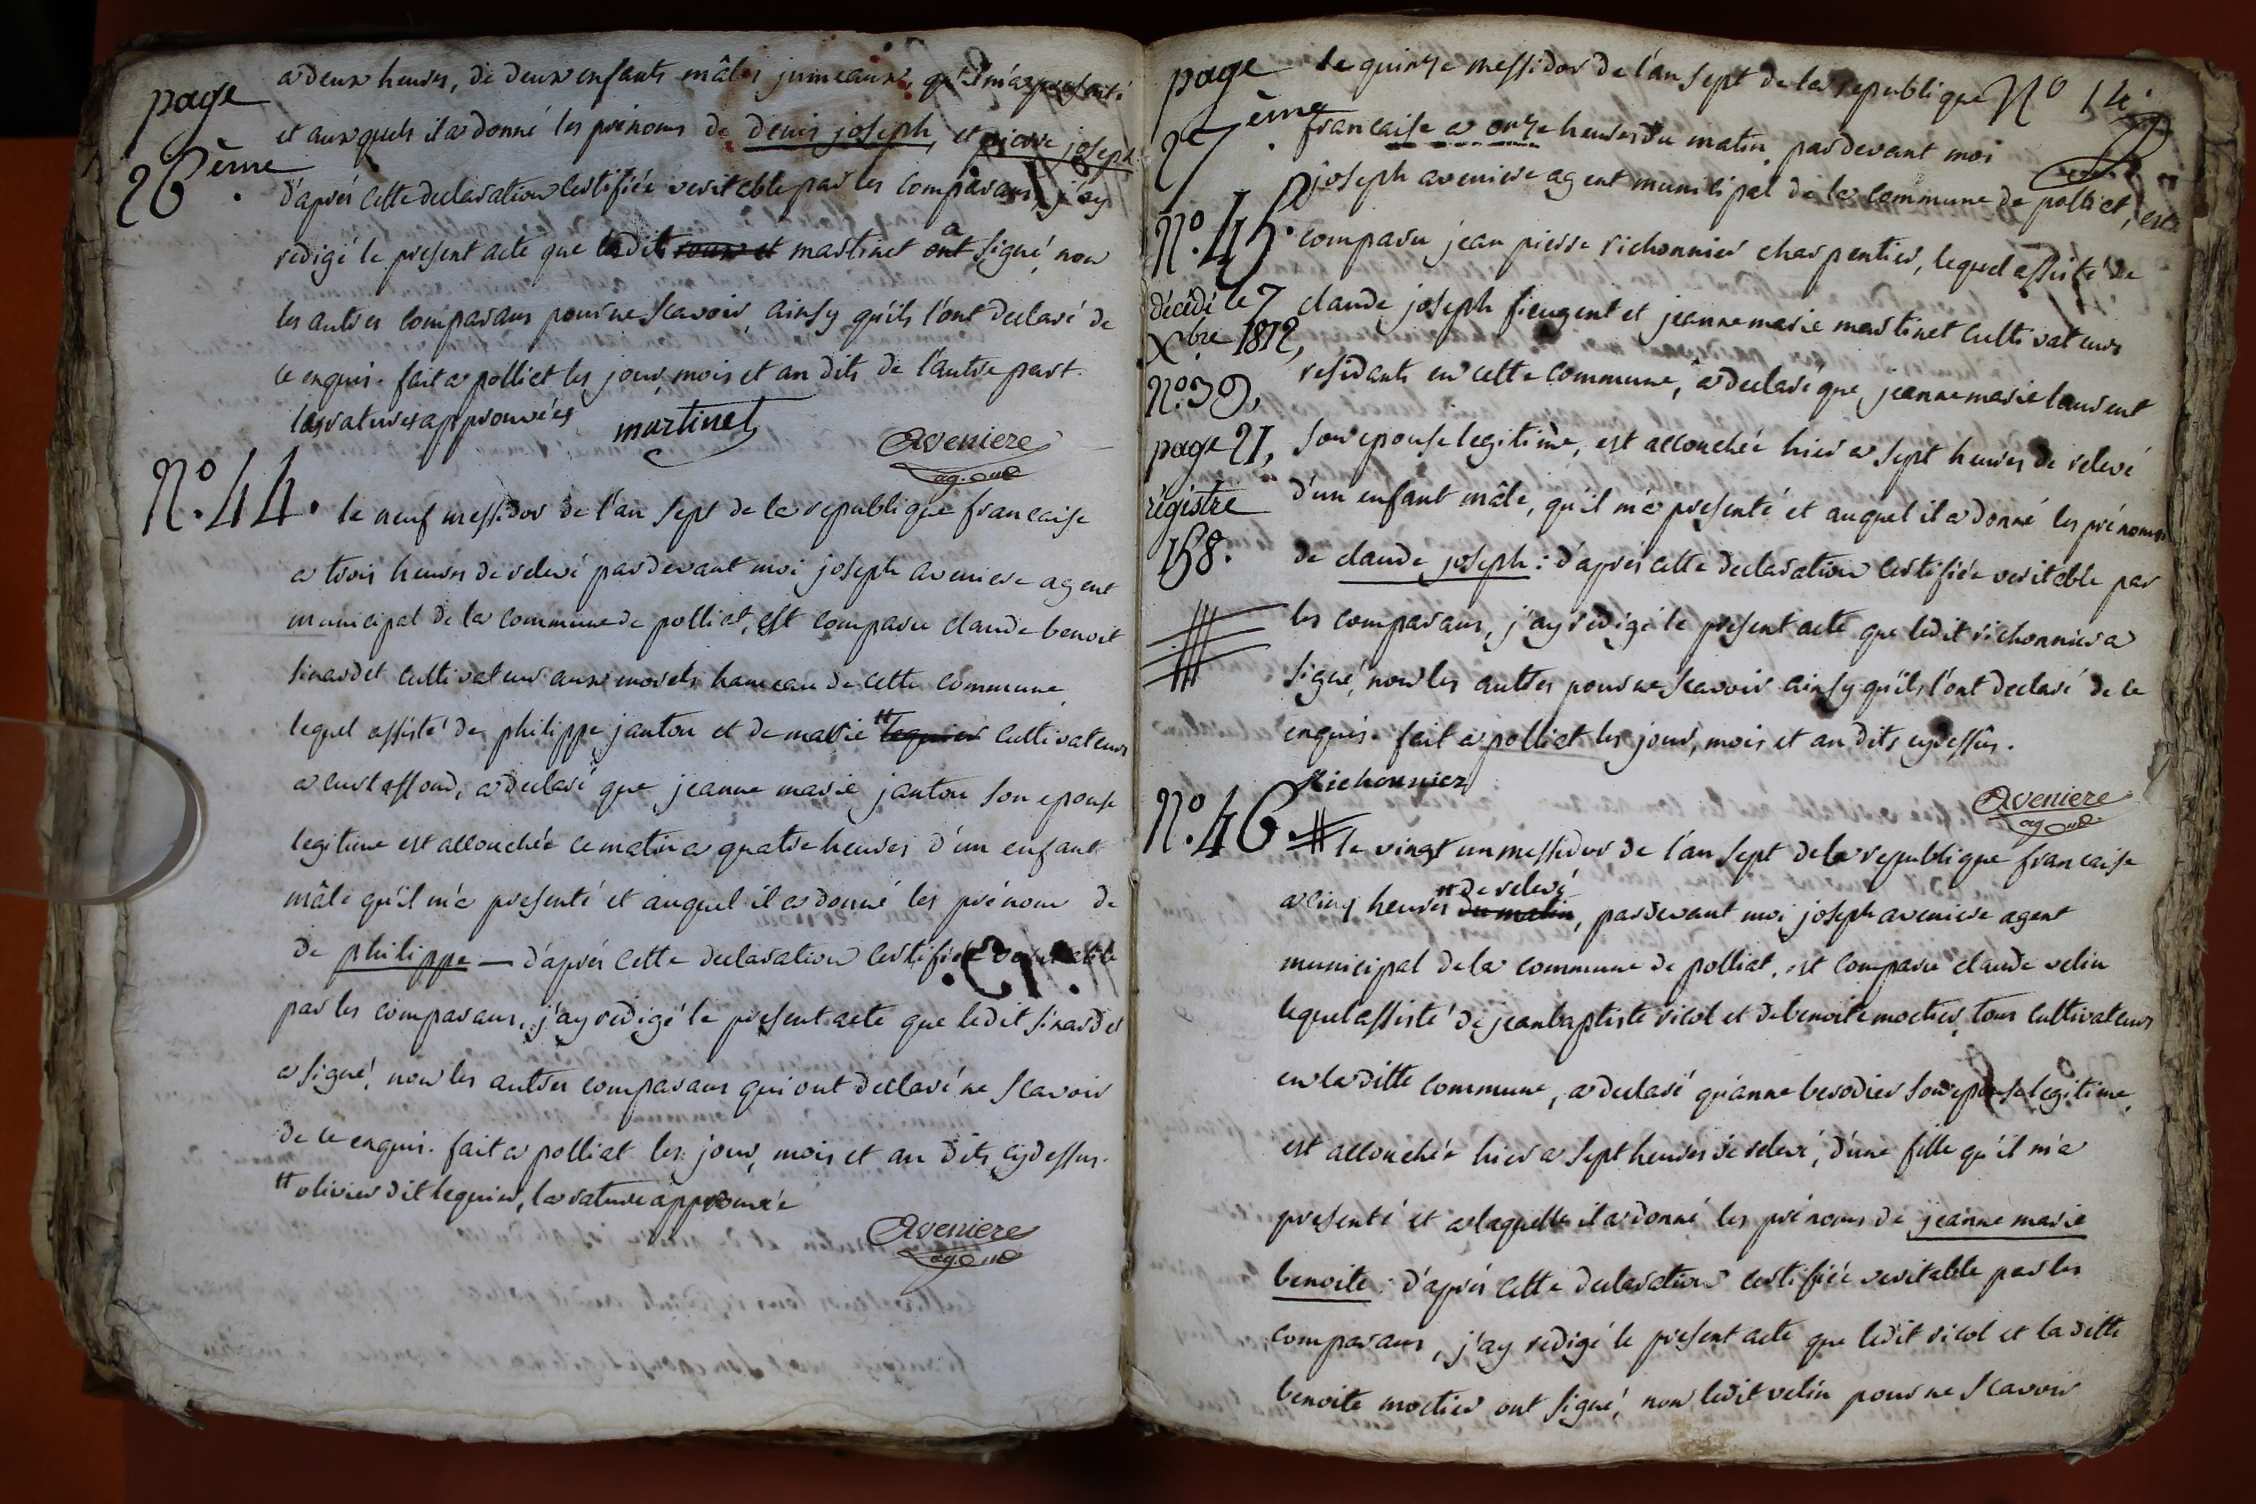 page
26ème.
a deux heures, de deux enfants mâles jumeaux, qu'il m'a presenté
et auxquels il a donné les prénoms de denis joseph, et pierre joseph
d'aprés cette declaration certifiée veritable par les comparans, j'ay
redigé le present acte que ledit martinet a signé, non
les autres comparans pour ne scavoir, ainsy qu'ils l'ont declaré de
ce enquis. fait a polliat les jour, mois et an dits de l'autre part.
les ratures approuvées
martinet
Aveniere
ag. m
N.o 44.
le neuf messidor de l'an sept de la republique francaise
a trois heures de relevé pardevant moi joseph aveniere agent
municipal de la commune de polliat, est comparu claude benoit
sirardet cultivateur aux morels hameau de cette commune,
lequel assisté de philippe janton et de marie lequier cultivateurs
a curtaffond, a declaré que jeanne marie janton son epouse
legitime est accouchée ce matin a quatre heures d'un enfant
mâle qu'il m'a presenté et auquel il a donné les prénom de
de philippe — d'aprés cette declaration certifiée veritable
par les comparans, j'ay redigé le present acte que ledit sirardet
a signé, non les autres comparans qui ont declaré ne scavoir
de ce enquis. fait a polliat les jour, mois et an dits cydessus.
# olivier dit lequier, la rature approuvée
Aveniere
ag. m
page
27ème.
N.o 14.
le quinze messidor de l'an sept de la republique
francaise a onze heures du matin, pardevant moi
joseph aveniere agent municipal de la commune de polliat, est
N.o 45.
comparu jean pierre richonnier charpentier, lequel assisté de
claude joseph fieugent et jeanne marie martinet cultivateurs
residants en cette commune, a declaré que jeanne marie laurent
son epouse legitime, est accouchée hier a sept heures de relevé
d'un enfant mâle, qu'il m'a presenté et auquel il a donné les prénoms
de claude joseph : d'aprés cette declaration certifiée veritable par
les comparans, j'ay redigé le present acte que ledit richonnier a
signé, non les autres pour ne scavoir ainsy qu'ils l'ont declaré de ce
enquis. fait a polliat les jour, mois et an dits cydessus.
décédé le 7
Xbre 1812,
N.o 39,
page 21,
régistre
158.
Richonnier
Aveniere
ag. m
N.o 46.
# le vingt un messidor de l'an sept de la republique francaise
a cinq heures du matin # de relevé, pardevant moi joseph aveniere agent
municipal de la commune de polliat, est comparu claude velin
lequel assisté de jean baptiste ricol et de benoite moctier, tous cultivateurs
en la ditte commune, a declaré qu'anne berodier son epouse legitime,
est accouchée hier a sept heures de relevé, d'une fille qu'il m'a
presenté et a laquelle il a donné les prénoms de jeanne marie
benoite : d'aprés cette declaration certifiée veritable par les
comparans, j'ay redigé le present acte que ledit ricol et la ditte
benoite moctier ont signé, non ledit velin pour ne scavoir